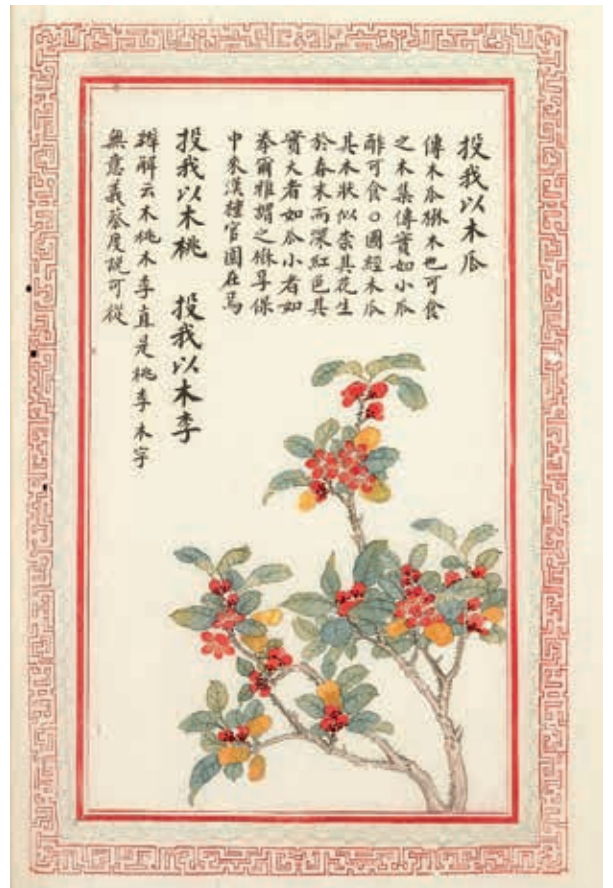 投我以木瓜
傳木瓜楙木也可食
之木集傳實如小瓜
酢可食〇圖經木瓜
其木狀似柰其花生
於春末而深紅色其
實大者如瓜小者如
拳爾雅謂之楙享保
中來漢種官園在焉
投我以木桃　投我以木李
辨解云木桃木李直是桃李木字
無意義蔡度說可從